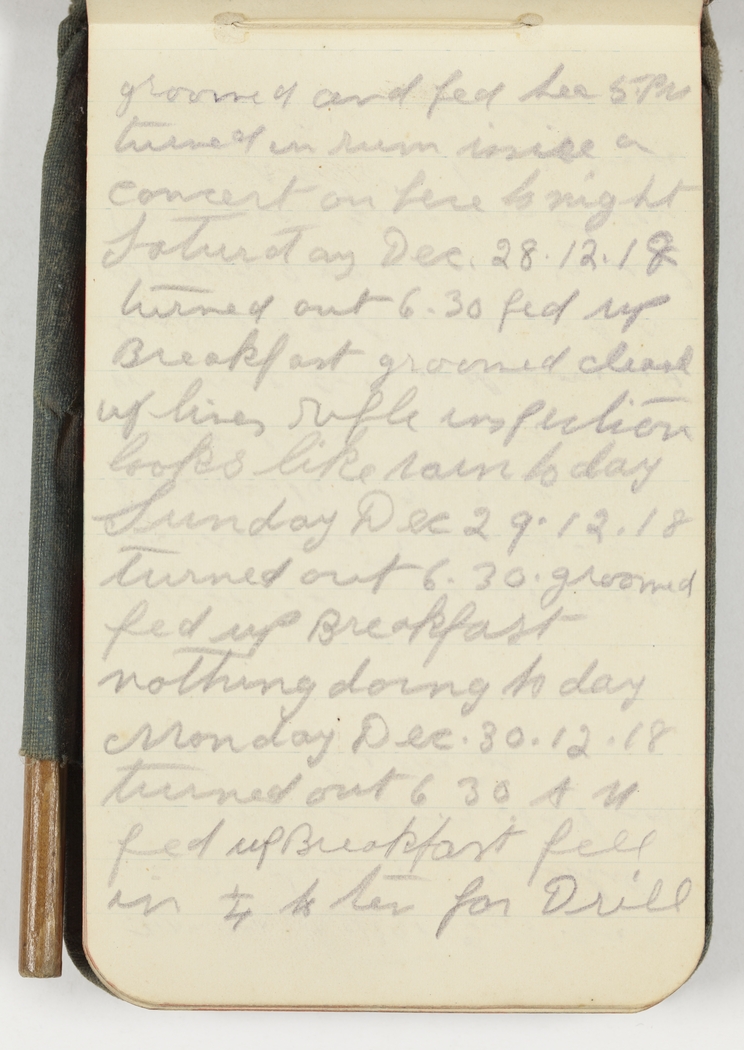 groomed and fed tea 5 PM
turned in rum issue a
concert on here to night
Saturday Dec. 28.12.18
turned out 6.30 fed up
Breakfast groomed clean
up lines rifle inspection
looks like rain to day
Sunday Dec 29.12.18
turned out 6.30. groomed
fed up Breakfast
nothing doing to day
Monday Dec. 30.12.18
turned out 6 30 A M
fed up Breakfast fell
in ¼ to ten for Drill